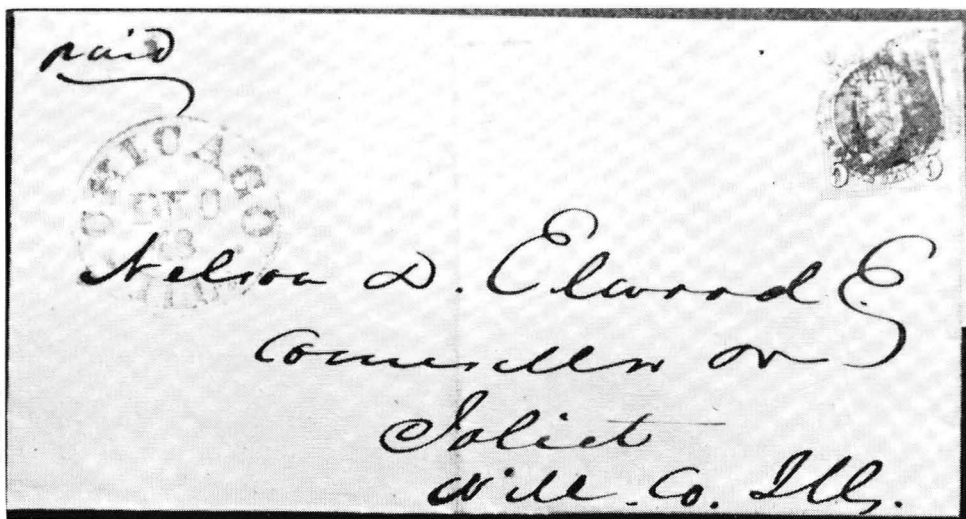 paid
CHICAGO
Nelson D. Elwood E
Counsellor
Joliet
Will Co. Ills.
5 5